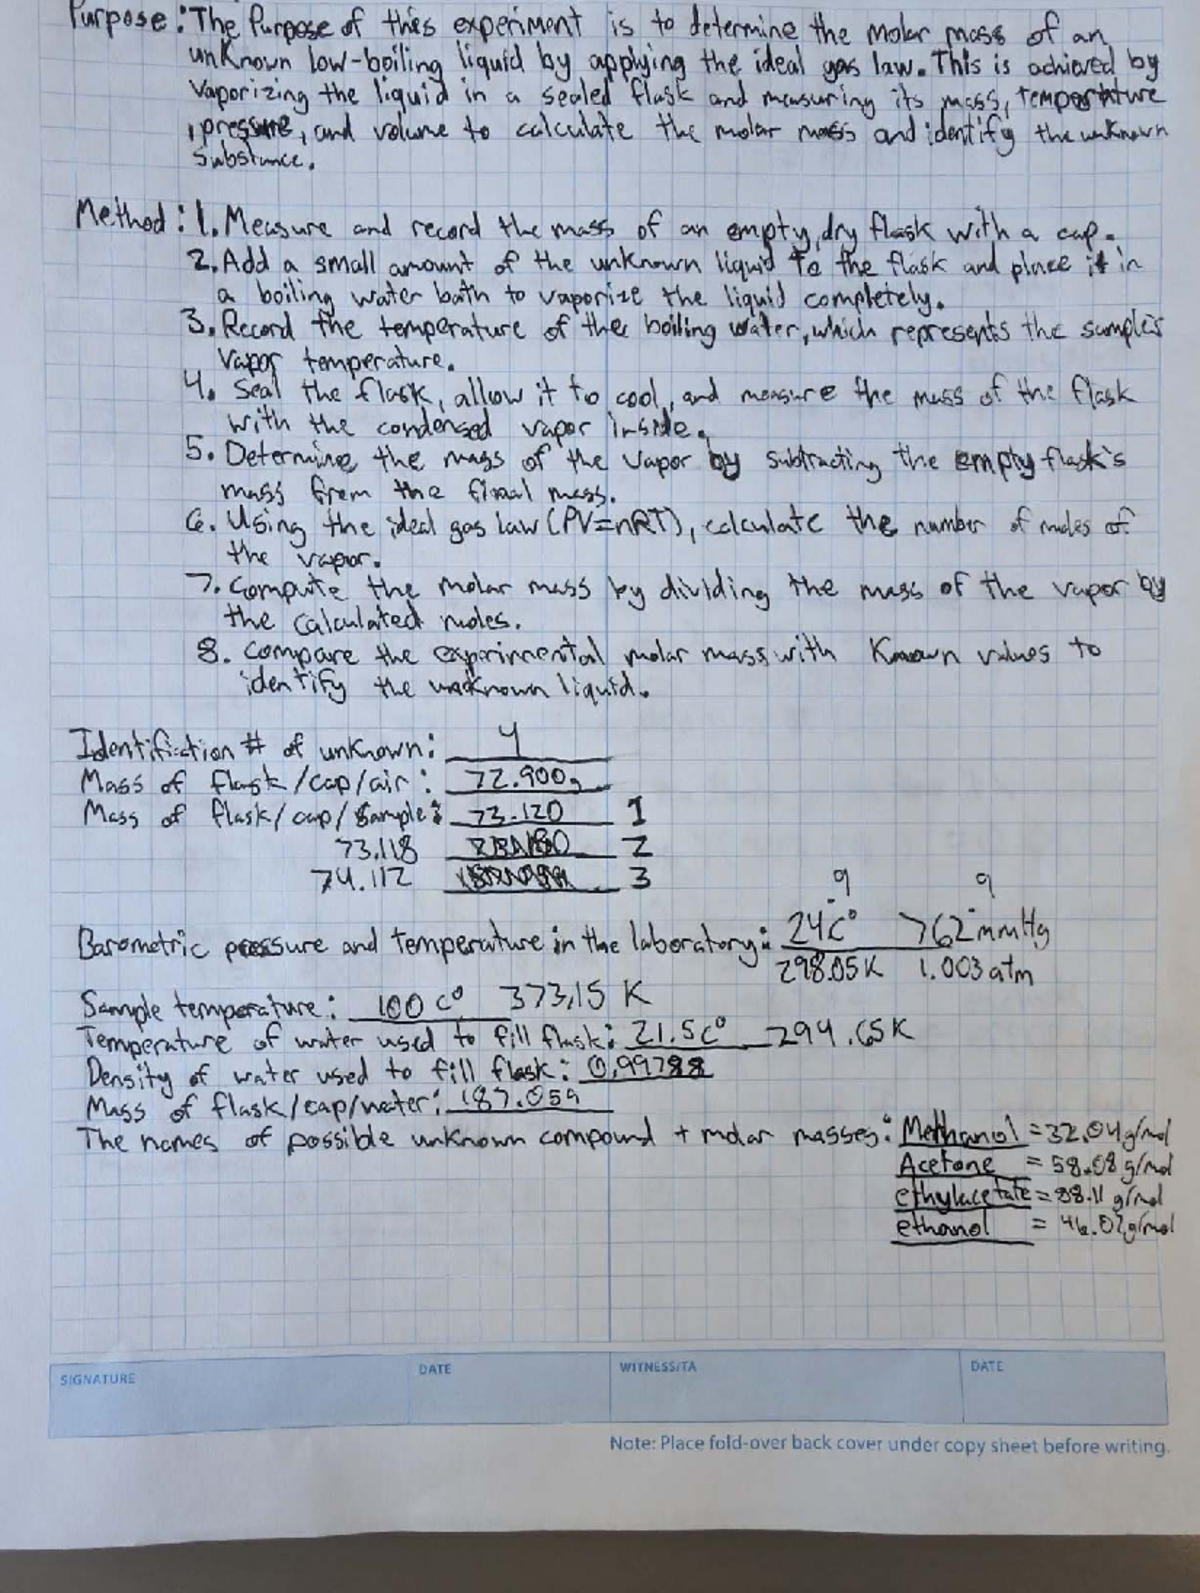 Purpose: The Purpose of this experiment is to determine the molar mass of an
unknown low-boiling liquid by applying the ideal gas law. This is achieved by
vaporizing the liquid in a sealed flask and measuring its mass, temperature
, pressure, and volume to calculate the molar mass and identify the unknown
Substance.
Method: 1. Measure and record the mass of an empty, dry flask with a cap.
2. Add a small amount of the unknown liquid to the flask and place it in
a boiling water bath to vaporize the liquid completely.
3. Record the temperature of the boiling water, which represents the sample's
vapor temperature.
4. Seal the flask, allow it to cool, and measure the mass of the flask
with the condensed vapor inside.
5. Determine the mass of the vapor by subtracting the empty flask's
mass from the final mass.
6. Using the ideal gas law (PV=nRT), calculate the number of moles of
the vapor.
7. Compute the molar mass by dividing the mass of the vapor by
the calculated moles.
8. Compare the experimental molar mass with Known values to
identify the unknown liquid.
Identifiction # of unknown: 4
Mass of flask/cap/air: 72.900g
Mass of flask/cap/sample: 73.120 1
73.118 2
74.112 3
9 9
Barometric pressure and temperature in the laboratory: 24.C° 762.mmHg
298.05K 1.003atm
Sample temperature: 100 C° 373.15 K
Temperature of water used to fill flask: 21.5C° 294.65K
Density of water used to fill flask: 0.99788
Mass of flask/cap/water: 187.059
The names of possible unknown compound + molar masses: Methanol = 32.04g/mol
Acetone = 58.08 g/mol
ethylacetate = 88.11 g/mol
ethanol = 46.07g/mol
SIGNATURE DATE WITNESS/TA DATE
Note: Place fold-over back cover under copy sheet before writing.